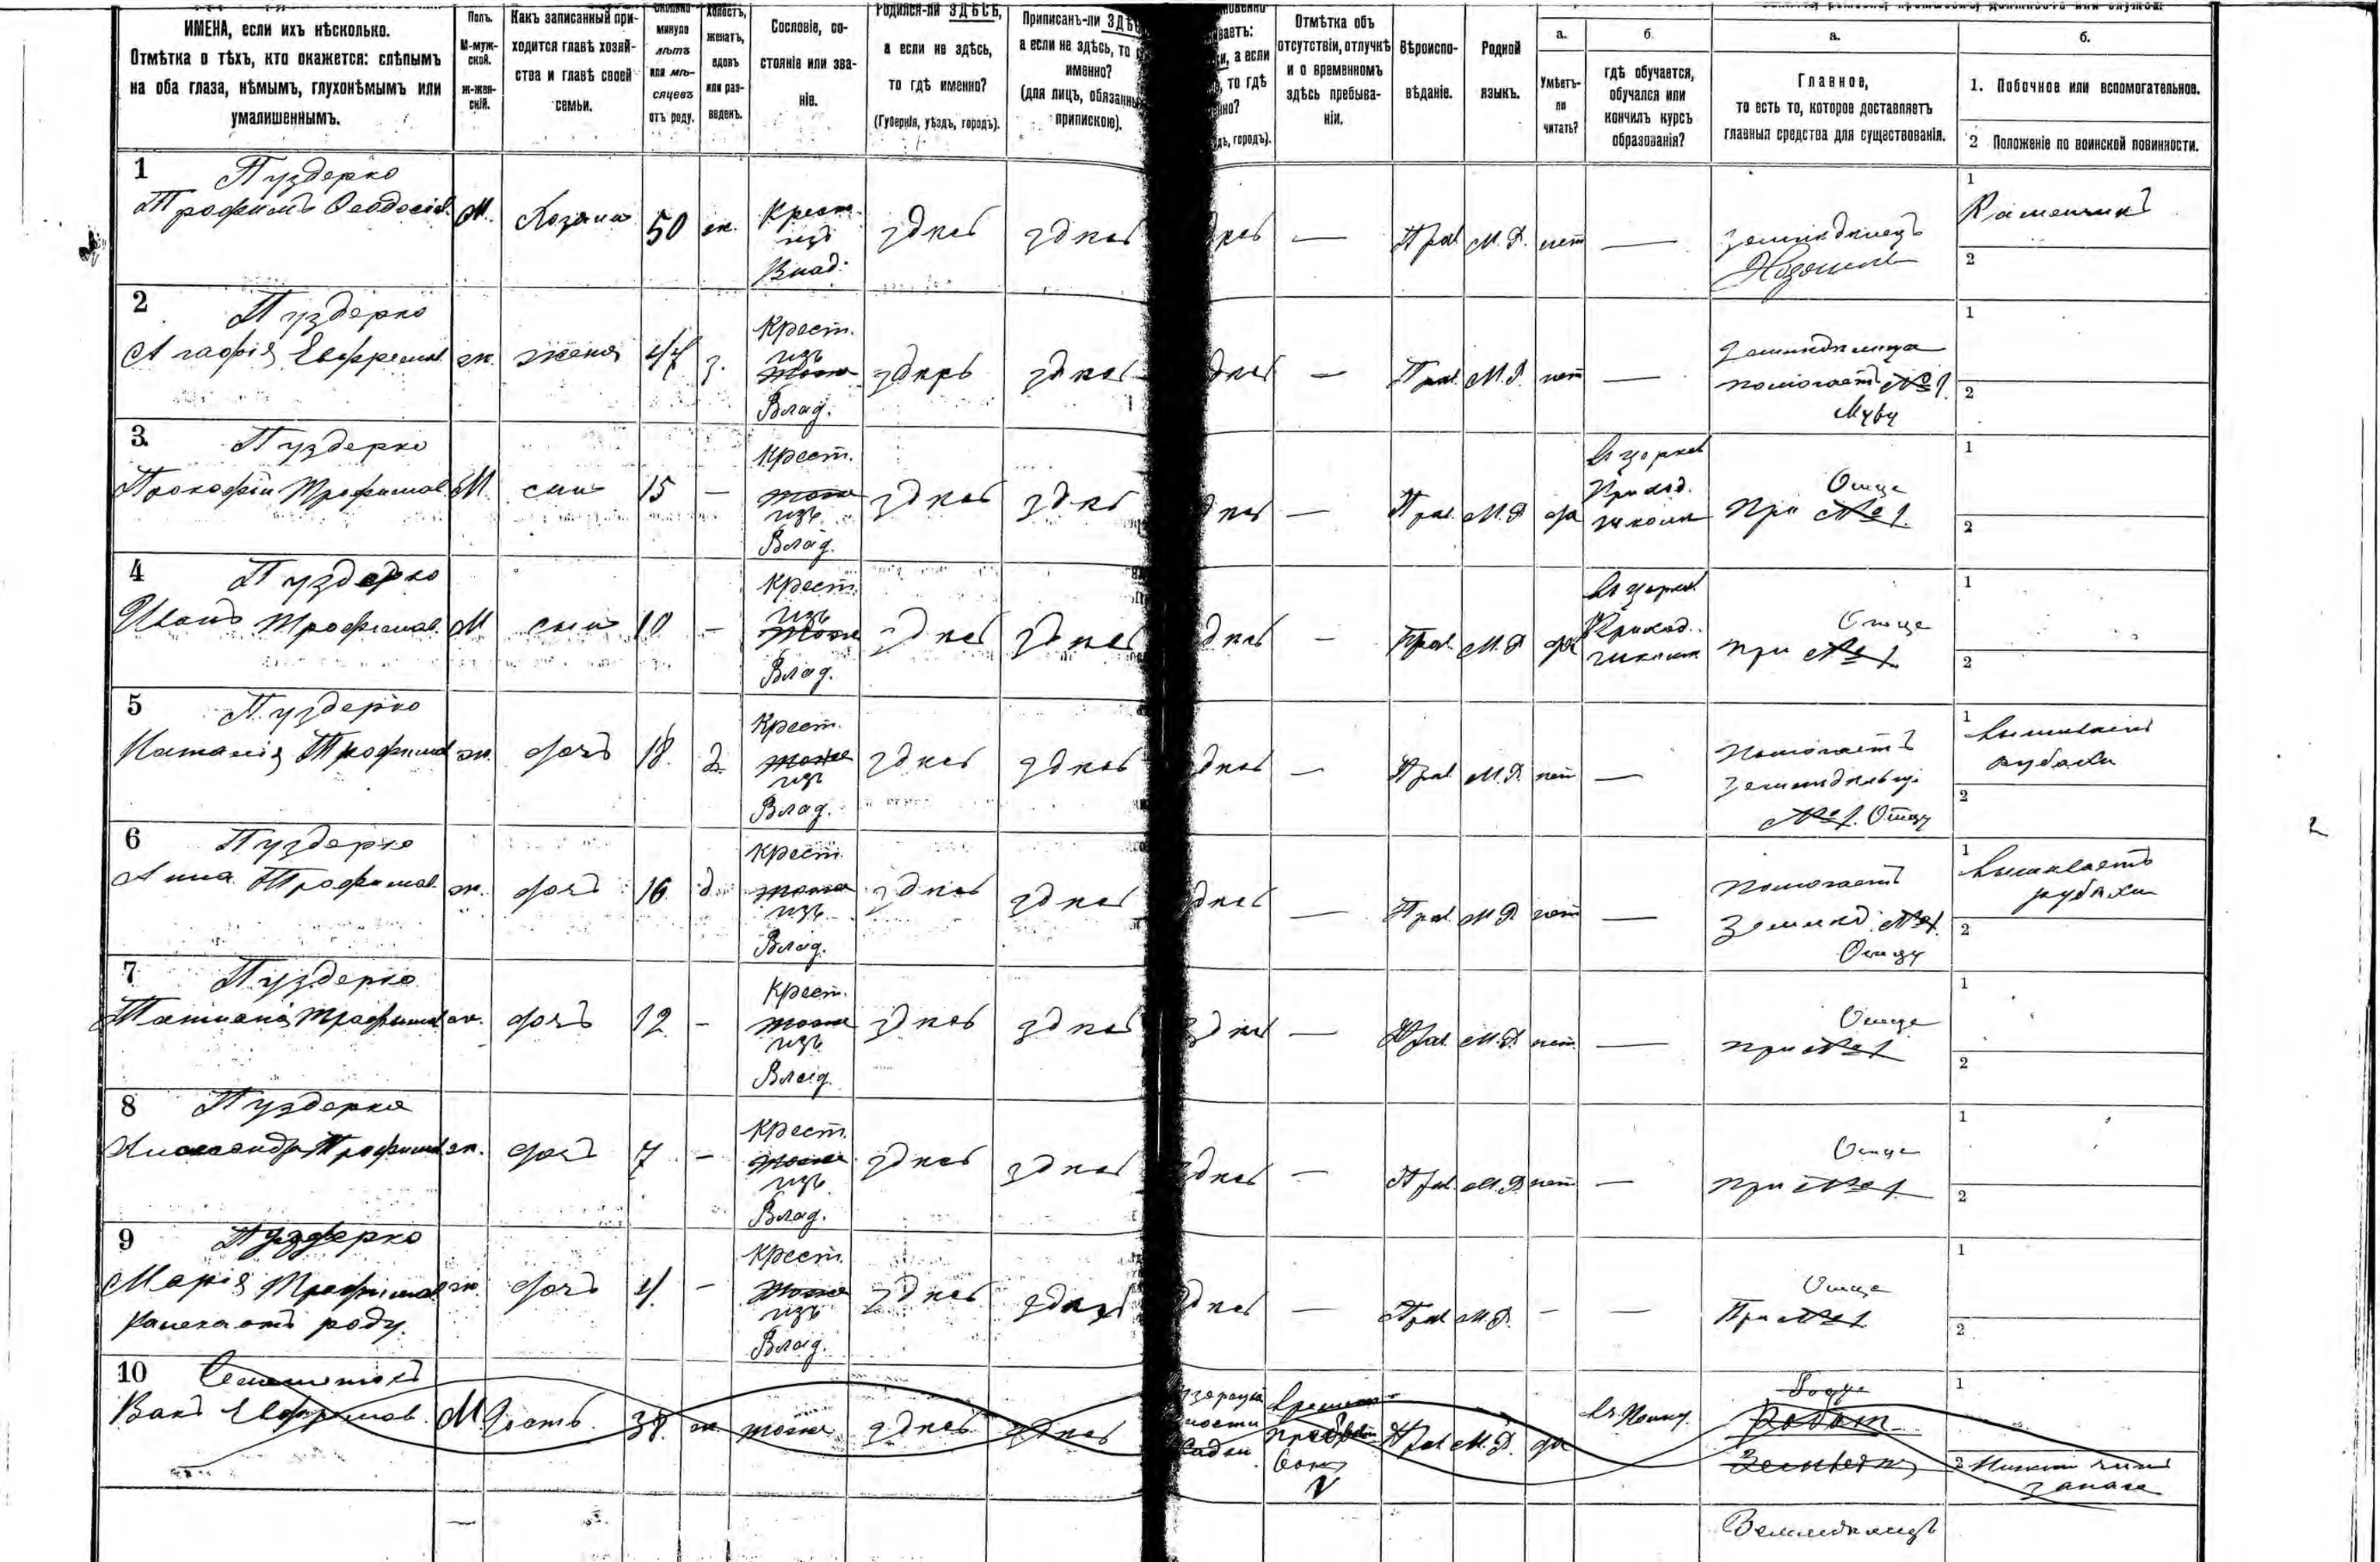 ИМЕНА, если ихъ нѣсколько.
Отмѣтка о тѣхъ, кто окажется: слѣпымъ
на оба глаза, нѣмымъ, глухонѣмымъ или
умалишеннымъ.
Полъ.
М-муж-
ской.
ж-жен-
скій.
Какъ записанный при-
ходится главѣ хозяй-
ства и главѣ своей
семьи.
минуло
лѣтъ
или мѣ-
сяцевъ
отъ роду.
холостъ,
женатъ,
вдовъ
или раз-
веденъ.
Сословіе, со-
стояніе или зва-
ніе.
Родился-ли ЗДѢСЬ,
а если не здѣсь,
то гдѣ именно?
(Губернія, уѣздъ, городъ).
Приписанъ-ли
а если не здѣсь, то
именно?
(для лицъ, обязанны
припискою).
ваетъ:
а если
то гдѣ
городъ).
Отмѣтка объ
отсутствіи, отлучкѣ
и о временномъ
здѣсь пребыва-
ніи.
Вѣроиспо-
вѣданіе.
Родной
языкъ.
а.
Умѣетъ-
ли
читать?
б.
гдѣ обучается,
обучался или
кончилъ курсъ
образованія?
а.
Главное,
то есть то, которое доставляетъ
главныя средства для существованія.
б.
1. Побочное или вспомогательное.
2 Положеніе по воинской повинности.
1 Пуздерко
Трофимъ Ѳеодосіев. М. Хозяинъ 50 ж. Крест. изъ Влад. здѣсь здѣсь — Прав. М.Р. нет — земледѣлецъ Хозяинъ 1 Каменщикъ 2
2 Пуздерко
Агафія Евфремов. ж. жена 44 з. Крест. изъ тоже Влад. здѣсь здѣсь — Прав. М.Р. нет — помогает №1. Мужу 1 2
3 Пуздерко
Прокофій Трофимов. М. сын 15 — Крест. тоже изъ Влад. здѣсь здѣсь — Прав. М.Р. да В церков Приход. школе При Отце №1. 1 2
4 Пуздерко
Иванъ Трофимов. М сын 10 — Крест. изъ тоже Влад. здѣсь здѣсь — Прав. М.Р. да В церков Приход. школе при Отце №1 1 2
5 Пуздерко
Наталія Трофимов ж. дочь 18. д. Крест. тоже изъ Влад. здѣсь здѣсь — Прав. М.Р. нет — Помогаетъ №1. Отцу 1 вышиваетъ рубахи 2
6 Пуздерко
Анна Трофимов. ж. дочь 16 д Крест. тоже изъ Влад. здѣсь здѣсь — Прав. М.Р. нет — Помогаетъ Земледѣ. №1. Отцу 1 вышиваетъ рубахи 2
7 Пуздерко
Татиана Трофимов ж. дочь 12 — Крест. тоже изъ Влад. здѣсь здѣсь — Прав. М.Р. нет. — при Отце №1 1 2
8 Пуздерко
Александра Трофимов ж. дочь 7 — Крест. тоже изъ Влад. здѣсь здѣсь — Прав. М.Р. нет — при Отце №1. 1 2
9 Пуздерко
Марія Трофимов ж. дочь 4. — Крест. тоже изъ Влад. здѣсь здѣсь — Прав М.Р. — — При Отце №1. 1 2
Калека отъ роду.
10
Евфремов. М Гость. 38. ж. тоже здѣсь здѣсь Прав М.Р. да 1 2 запаса
Земледѣлецъ